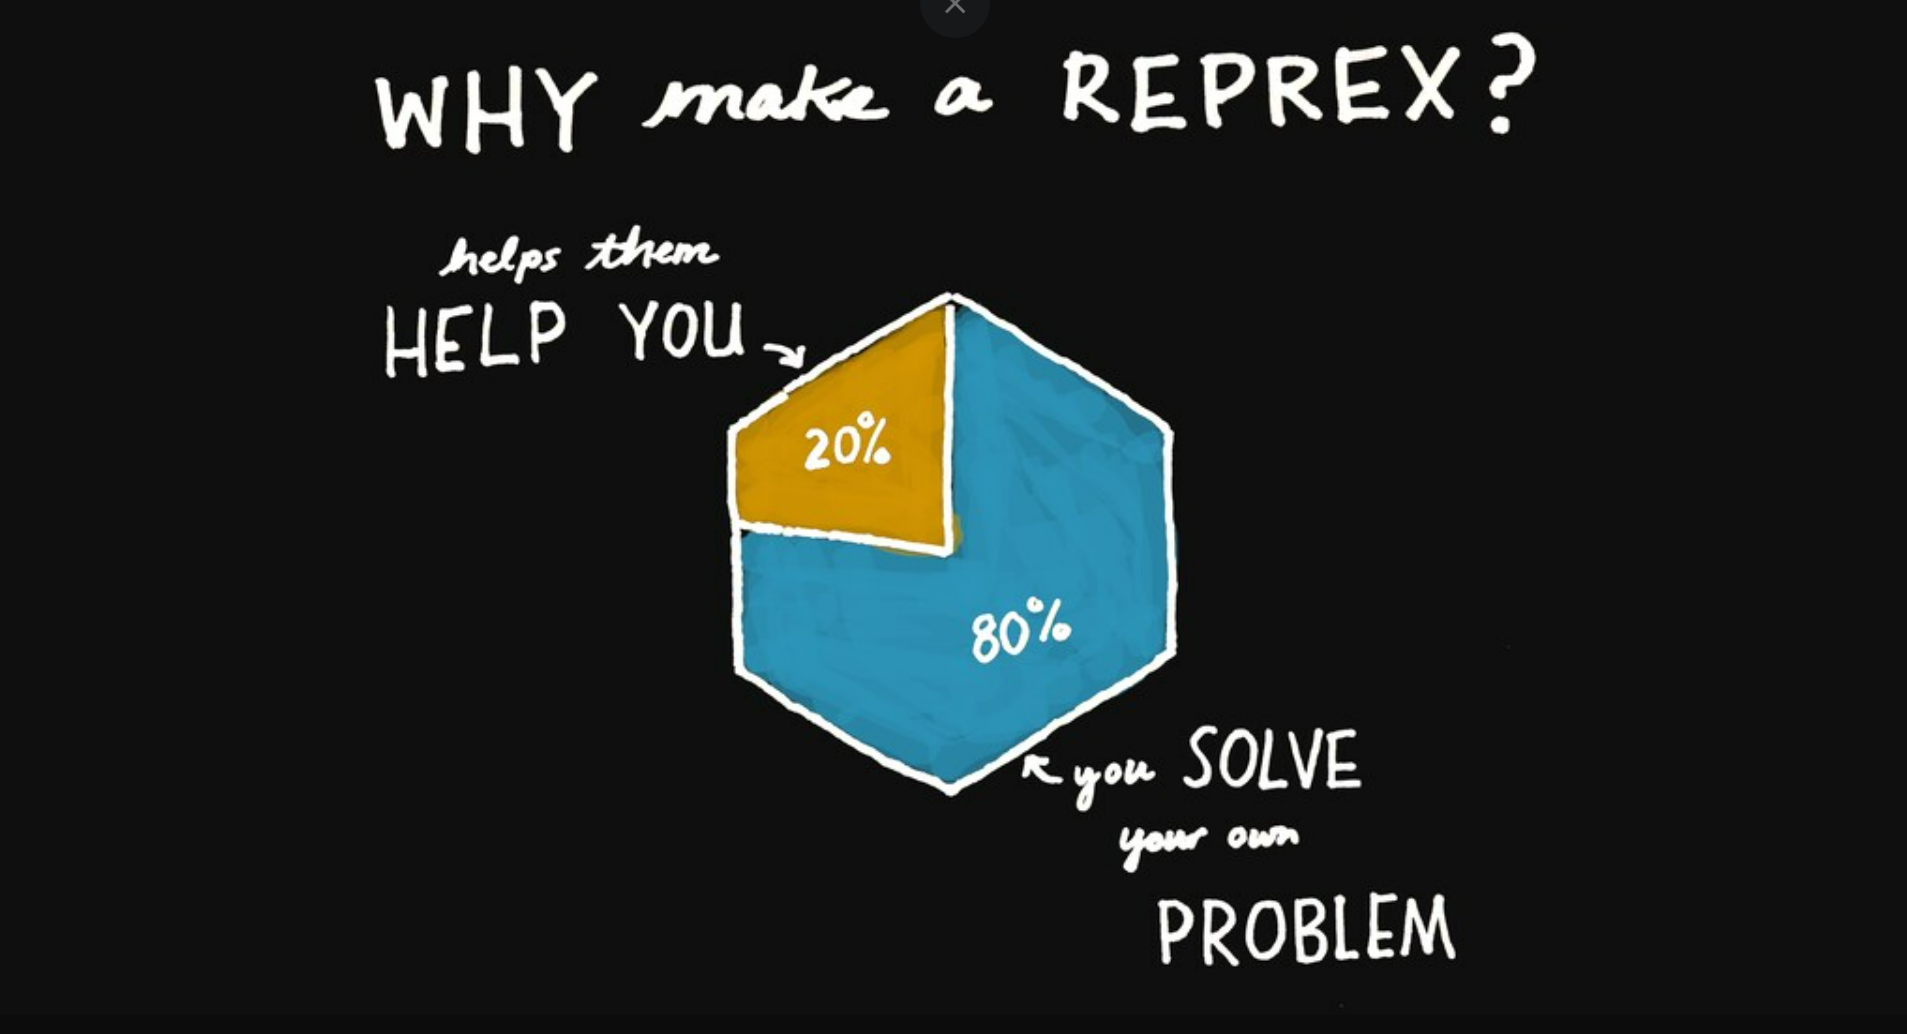 WHY make a REPREX?
helps them
HELP YOU
20%
80%
you SOLVE
your own
PROBLEM